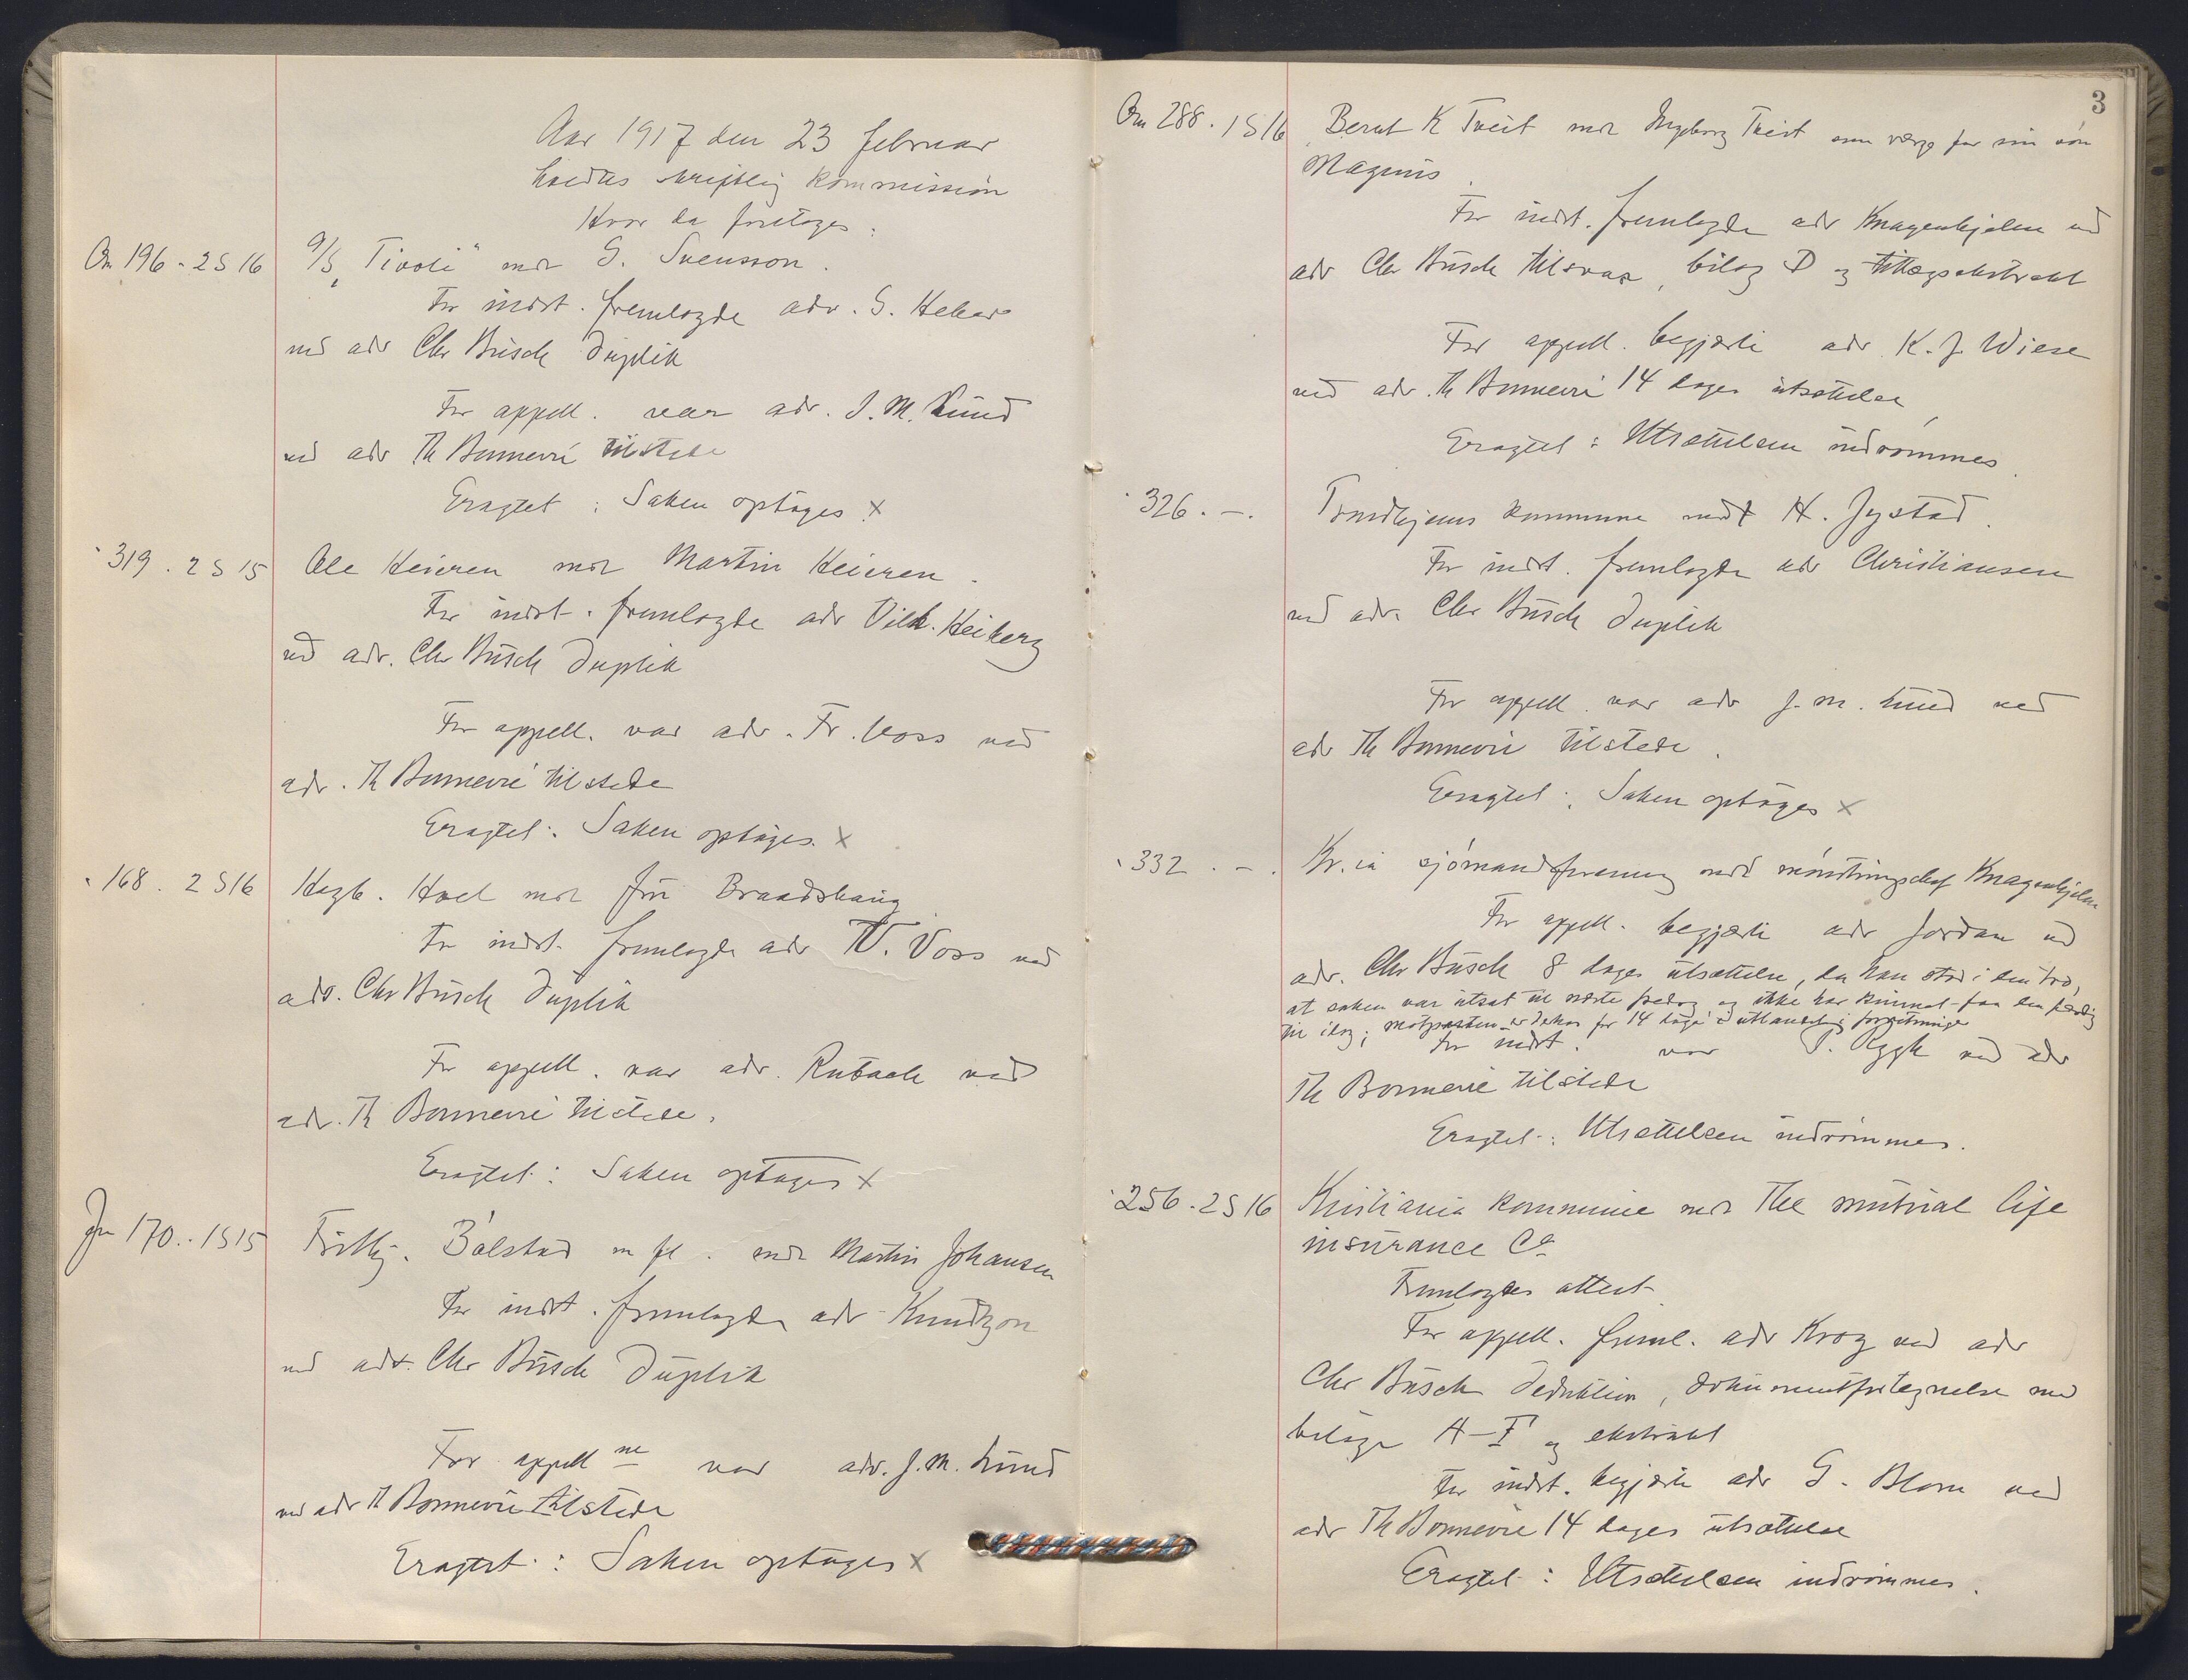 Aar 1917 den 23 februar
holdtes skriftlig kommission
Hvor da foretoges:
On 196 - 2 S 16 A/S "Tivoli" mot S. Svensson.
For indst. fremlagde adv. S. Heber
ved adv Chr Busch Duplik
For appell. var adv. J. M. Lund
ved adv Th Bonnevie tilstede
Eragtet: Saken optages x
" 319. 2 S 15 Ole Heieren mot Martin Heieren.
For indst. fremlagde adv Vilh. Heiberg
ved adv. Chr Busch Duplik
For appell. var adv. Fr. Voss ved
adv. Th Bonnevie tilstede
Eragtet: Saken optages. x
" 168. 2 S 16 Hagb. Hoel mot Fru Braadshaug
For indst. fremlagde adv Voss ved
adv. Chr Busch Duplik
For appell. var adv. Rubach ved
adv. Th Bonnevie tilstede.
Eragtet: Saken optages x
Jn 170. - 1 S 15 Bålstad m fl. mot Martin Johansen
For indst. fremlagde adv Knudtzon
ved adv. Chr Busch Duplik
For appell ne var adv. J. M. Lund
ved adv Th Bonnevie tilstede
Eragtet: Saken optages x
3
On 288. 1 S 16 Berut K Tveit mot Ingeborg Tveit som verge for sin søn
Magnus.
For indst. fremlagde adv Knagenhjelm ved
adv Chr Busch tilsvar, bilag D og tillægsekstrakt
For appell. begjærte adv K. J. Wiese
ved adv. Th Bonnevie 14 dages utsættelse
Eragtet: Utsættelsen indrømmes.
" 326. - . Trondhjems kommune mot H. Jystad.
For indst. fremlagde adv Christiansen
ved adv. Chr Busch Duplik
For appell. var adv J. M. Lund ved
adv Th Bonnevie tilstede.
Eragtet: Saken optages x
" 332. - . Kr.ia sjømandsforening mot mønstringschef Knagenhjelm
For appell. begjærte adv Jordan ved
adv. Chr Busch 8 dages utsættelse, da han stod i den tro,
at saken var utsat til næste fredag og ikke har kunnet faa den færdig
til idag; motparten er dekov for 14 dage i utlandet i forretninger
For indst. var P. Rygh ved adv
Th Bonnevie tilstede
Eragtet: Utsættelsen indrømmes.
" 256. 2 S 16 Kristiania kommune mot The mutual life
insurance Co
Fremlagdes attest
For appell. freml. adv Krog ved adv
Chr Busch deduktion, dokumentfortegnelse med
bilage A-F og ekstrakt
For indst. begjærte adv G. Blom ved
adv Th Bonnevie 14 dages utsættelse
Eragtet: Utsættelsen indrømmes.